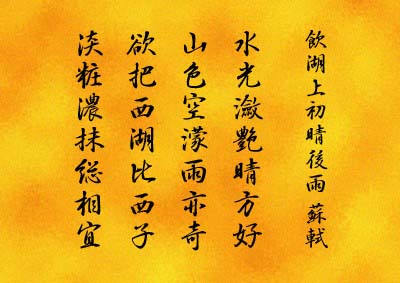 飲湖上初晴後雨 蘇軾
水光瀲艷晴方好
山色空濛雨亦奇
欲把西湖比西子
淡粧濃抹総相宜